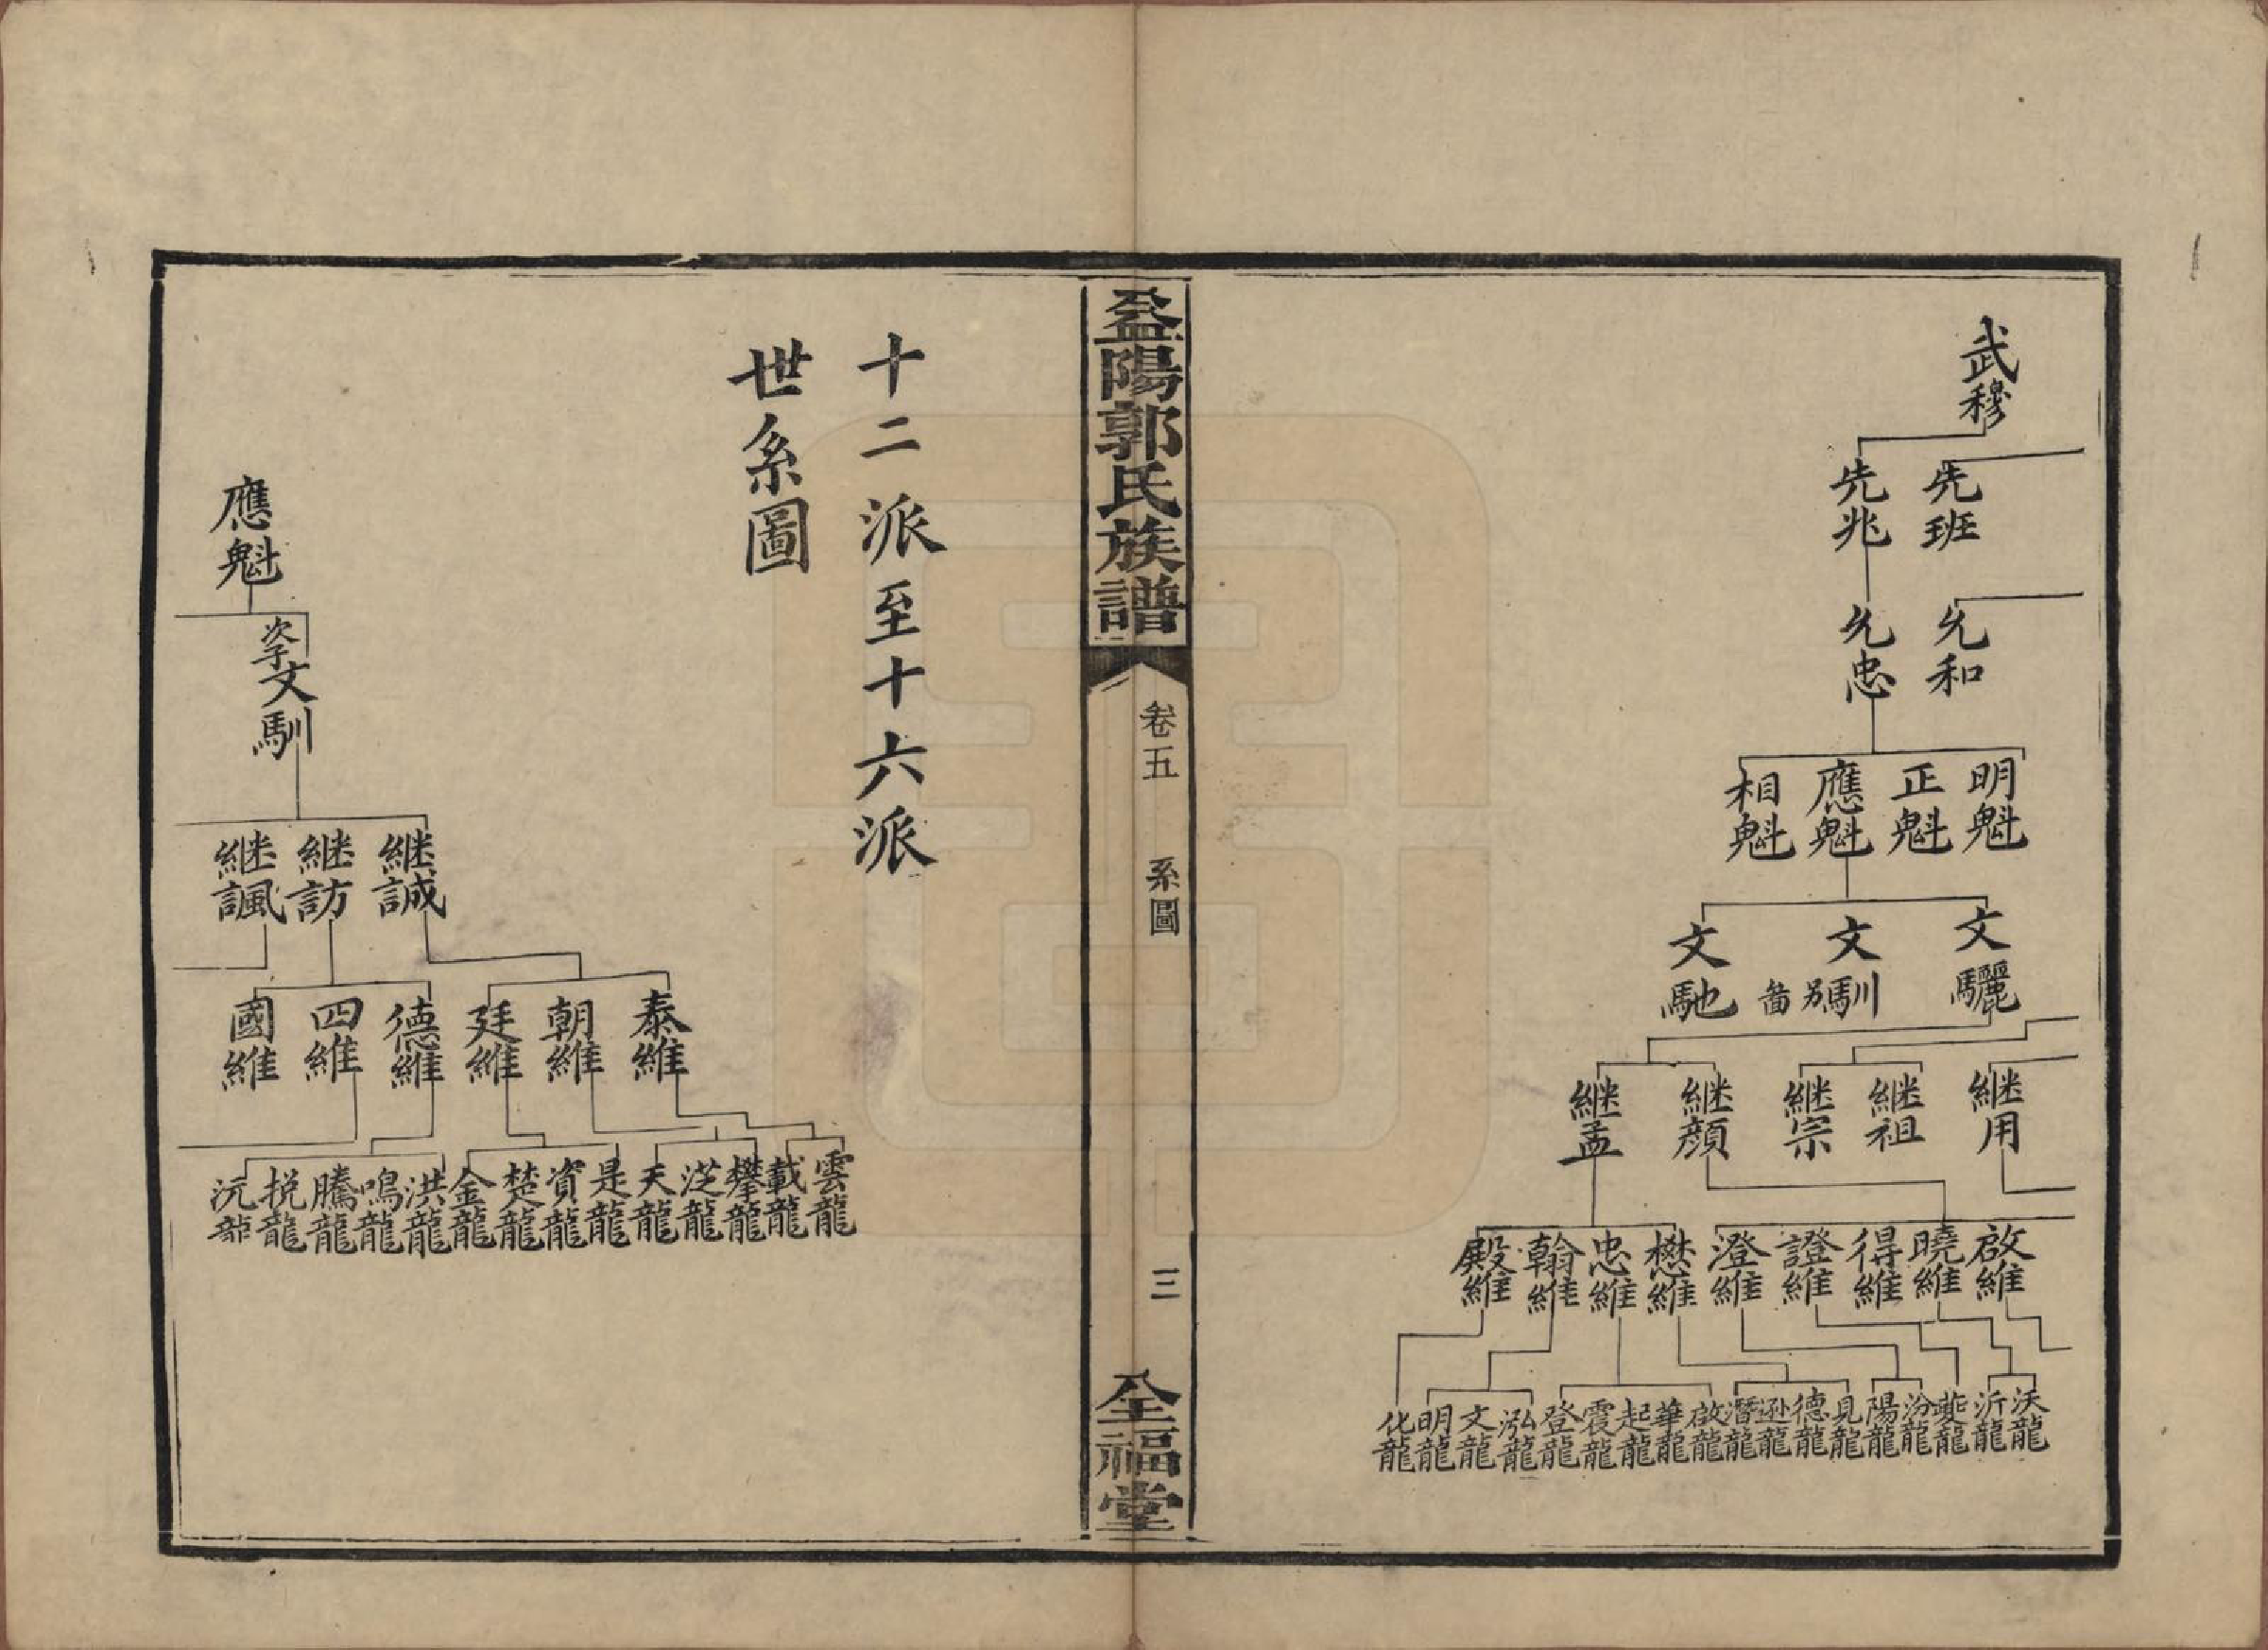 武穆
先班
先兆
允和
允忠
明魁
正魁
應魁
相魁
文驪
文馴 另啚
文馳
継用
継祖
継宗
継顔
継孟
啟維
曉維
得維
證維
澄維
懋維
忠維
翰維
殿維
沃龍
沂龍
夔龍
汾龍
陽龍
見龍
德龍
遜龍
潛龍
啟龍
華龍
起龍
震龍
登龍
泓龍
文龍
明龍
化龍
益陽郭氏族譜
卷五
系圖
三
全福堂
十二派至十六派
世系圖
應魁
次子文馴
継誠
継訪
継諷
泰維
朝維
廷維
德維
四維
國維
雲龍
載龍
攀龍
天龍
是龍
資龍
楚龍
金龍
洪龍
鳴龍
騰龍
挩龍
沅龍